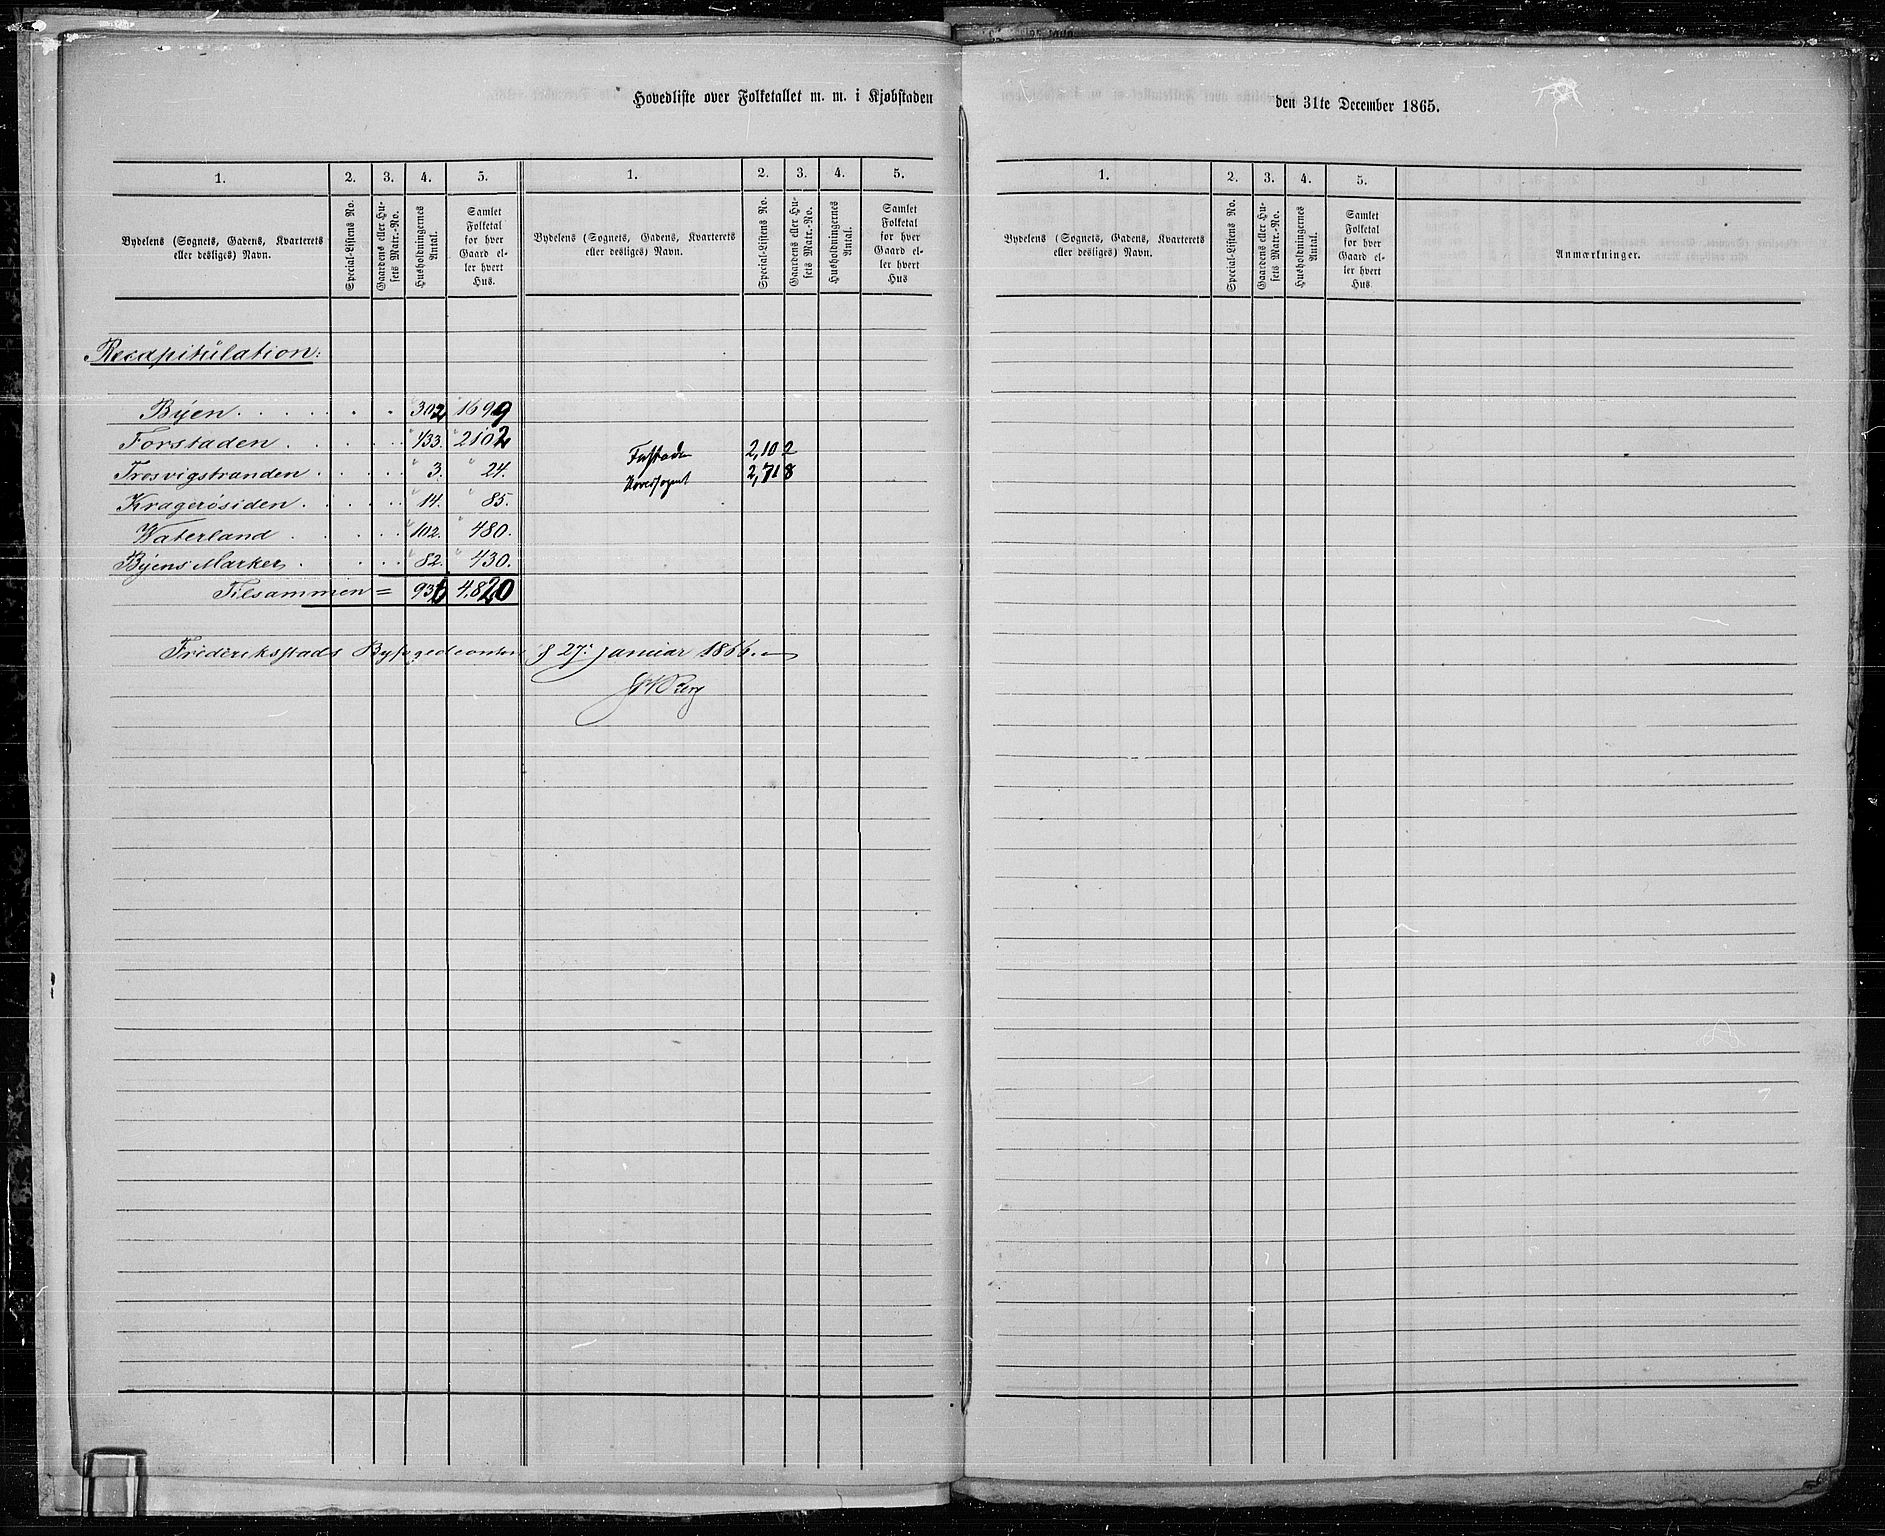 Hovedliste over Folketallet m. m. i Kjøbstaden
den 31te December 1865.
1. 2. 3. 4. 5. 1. 2. 3. 4. 5.
Bydelens (Sognets, Gadens, Kvarterets eller desliges) Navn.
Special-Listens No.
Gaardens eller Husets Matr.-No.
Husholdningernes Antal.
Samlet Folketal for hver Gaard eller hvert Hus.
Bydelens (Sognets, Gadens, Kvarterets eller desliges) Navn.
Special-Listens No.
Gaardens eller Husets Matr.-No.
Husholdningernes Antal.
Samlet Folketal for hver Gaard eller hvert Hus
Recapitulation:
Byen . . . . . . . 302 1699
Forstaden . . . . . . 433. 2102
Trosvigstranden . . . . . . 3. 24.
Kragerösiden . . . . . . 14. 85.
Waterland . . . . . 102. 480.
Byens Marker . . . . . 82. 430.
Tilsammen = 936 4,820
Forstaden 2,102
Hovedsognet 2,718
Frederiksstads Byfogedcontor d 27. Januar 1866.
Berg
1. 2. 3. 4. 5.
Bydelens (Sognets, Gadens, Kvarterets eller desliges) Navn.
Special-Listens No.
Gaardens eller Husets Matr.-No.
Husholdningernes Antal.
Samlet Folketal for hver Gaard eller hvert Hus.
Anmærkninger.